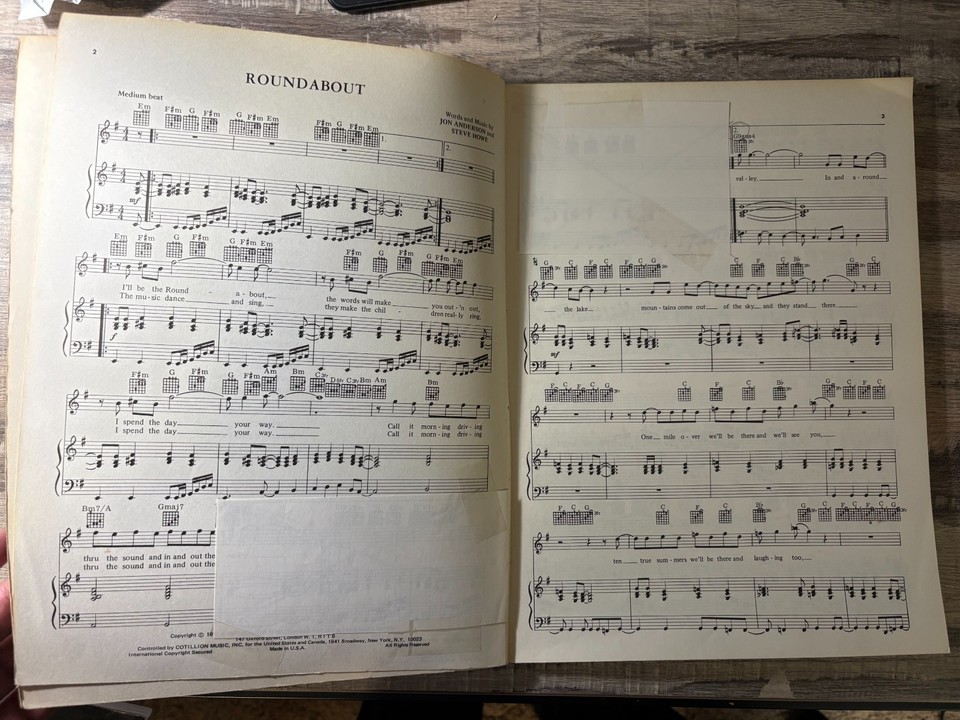 2
ROUNDABOUT
Medium beat
Words and Music by
JON ANDERSON and
STEVE HOWE
Em F#m G F#m G F#m Em F#m G F#m Em
1.
2.
mf
Em F#m G F#m G F#m Em F#m G F#m G F#m Em
I'll be the Round - a - bout, the words will make you out - 'n out,
The mu - sic dance and sing, they make the chil - dren real - ly ring,
F#m G F#m G Am Bm Bm Am Bm
I spend the day your way. Call it morn - ing driv - ing
I spend the day your way. Call it morn - ing driv - ing
Bm7/A Gmaj7
thru the sound and in and out the
thru the sound and in and out the
Copyright ©
Controlled by COTILLION MUSIC, INC. for the United States and Canada, 1841 Broadway, New York, N.Y. 10023
International Copyright Secured Made in U.S.A. All Rights Reserved
3
2.
val - ley. In and a - round
G C F C F C G C F C Bb G C
the lake moun - tains come out of the sky and they stand there
mf
F C F C G C F C Bb G C F C
One mile o - ver we'll be there and we'll see you,
F C F C G C F C Bb G C F C
ten true sum - mers we'll be there and laugh - ing too,